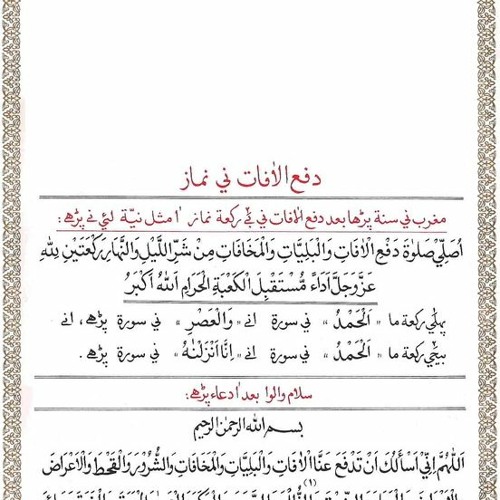 دفع الاٰفات ني نماز
مغرب ني سنة پڑها بعد دفع الاٰفات ني بے ركعة نماز اٰ مثل نية لئي نے پڑهے:
اُصَلِّيْ صَلٰوةَ دَفْعِ الْاٰفَاتِ وَالْبَلِيَّاتِ وَالْمَخَافَاتِ مِنْ شَرِّ اللَّيْلِ وَالنَّهَارِ رَكْعَتَيْنِ لِلّٰهِ
عَزَّ وَجَلَّ اَدَاءً مُسْتَقْبِلَ الْكَعْبَةِ الْحَرَامِ اَللهُ اَكْبَرُ
پهلي ركعة ما "اَلْحَمْدُ" ني سورة انے "وَالْعَصْرِ" ني سورة پڑهے، انے
بيجي ركعة ما "اَلْحَمْدُ" ني سورة انے "اِنَّا اَنْزَلْنٰهُ" ني سورة پڑهے.
سلام والوا بعد اٰ دعاء پڑهے:
بسم الله الرحمٰن الرحيم
اَللّٰهُمَّ اِنِّيْ اَسْأَلُكَ اَنْ تَدْفَعَ عَنَّا الْاٰفَاتِ وَالْبَلِيَّاتِ وَالْمَخَافَاتِ وَالشُّرُوْرَ وَالْقَحْطَ وَالْاَعْرَاضَ